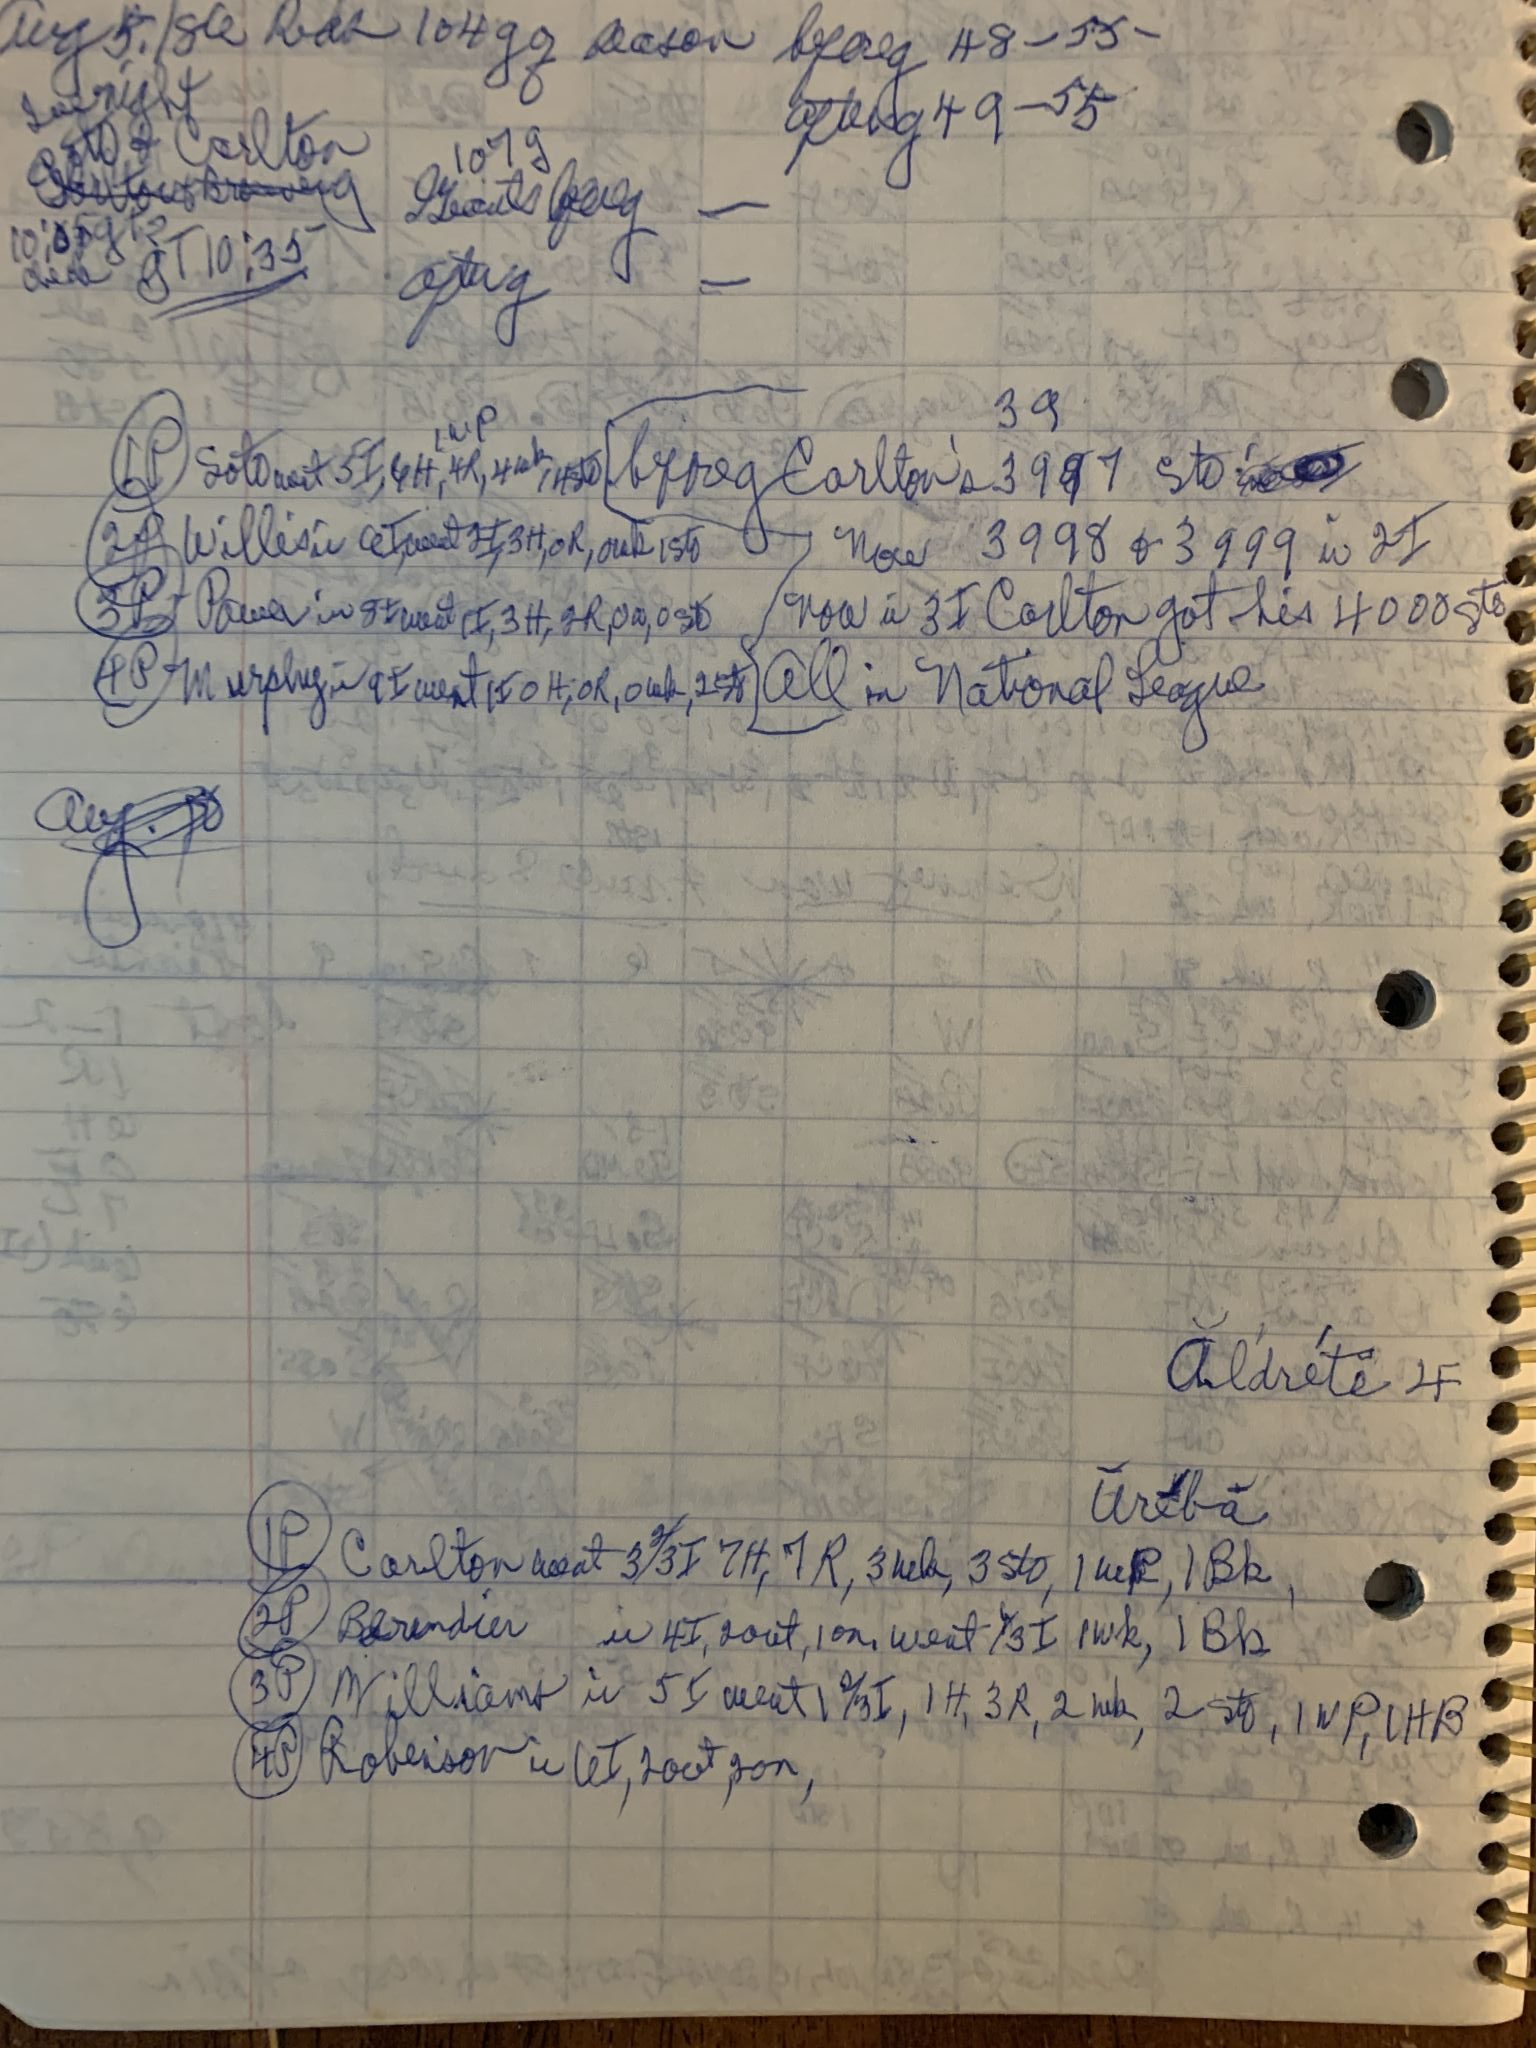 Aug 5. / 86 Reds 104g of season before g 48-55-
after g 49-55
Soto & Carlton
107g
Giants before g —
GT 10:35
after g —
39
1WP
1P Soto went 5I, 6H, 4R, 4wk, 4sto before g Carlton's 3997 sto
2P Willis in 6I, went 2I, 3H, 0R, 0wk 1sto Now 3998 & 3999 in 2I
3P Power in 8I went 1I, 3H, 2R, 0w, 0sto now in 3I Carlton got his 4000 sto
4P Murphy in 9I went 1I 0H, 0R, 0wk, 2sto All in National League
Aug.
Ăldrété 4
Ūrĭbā
1P Carlton went 3 2/3I 7H, 7R, 3wk, 3sto, 1WP, 1Bk,
2P Berendier in 4I, 2out, 1on, went 1/3I 1wk, 1Bk
3P Williams in 5I went 1 2/3I, 1H, 3R, 2wk, 2sto, 1WP, 1HB
4P Robenson in 6I, 2out, 2on,